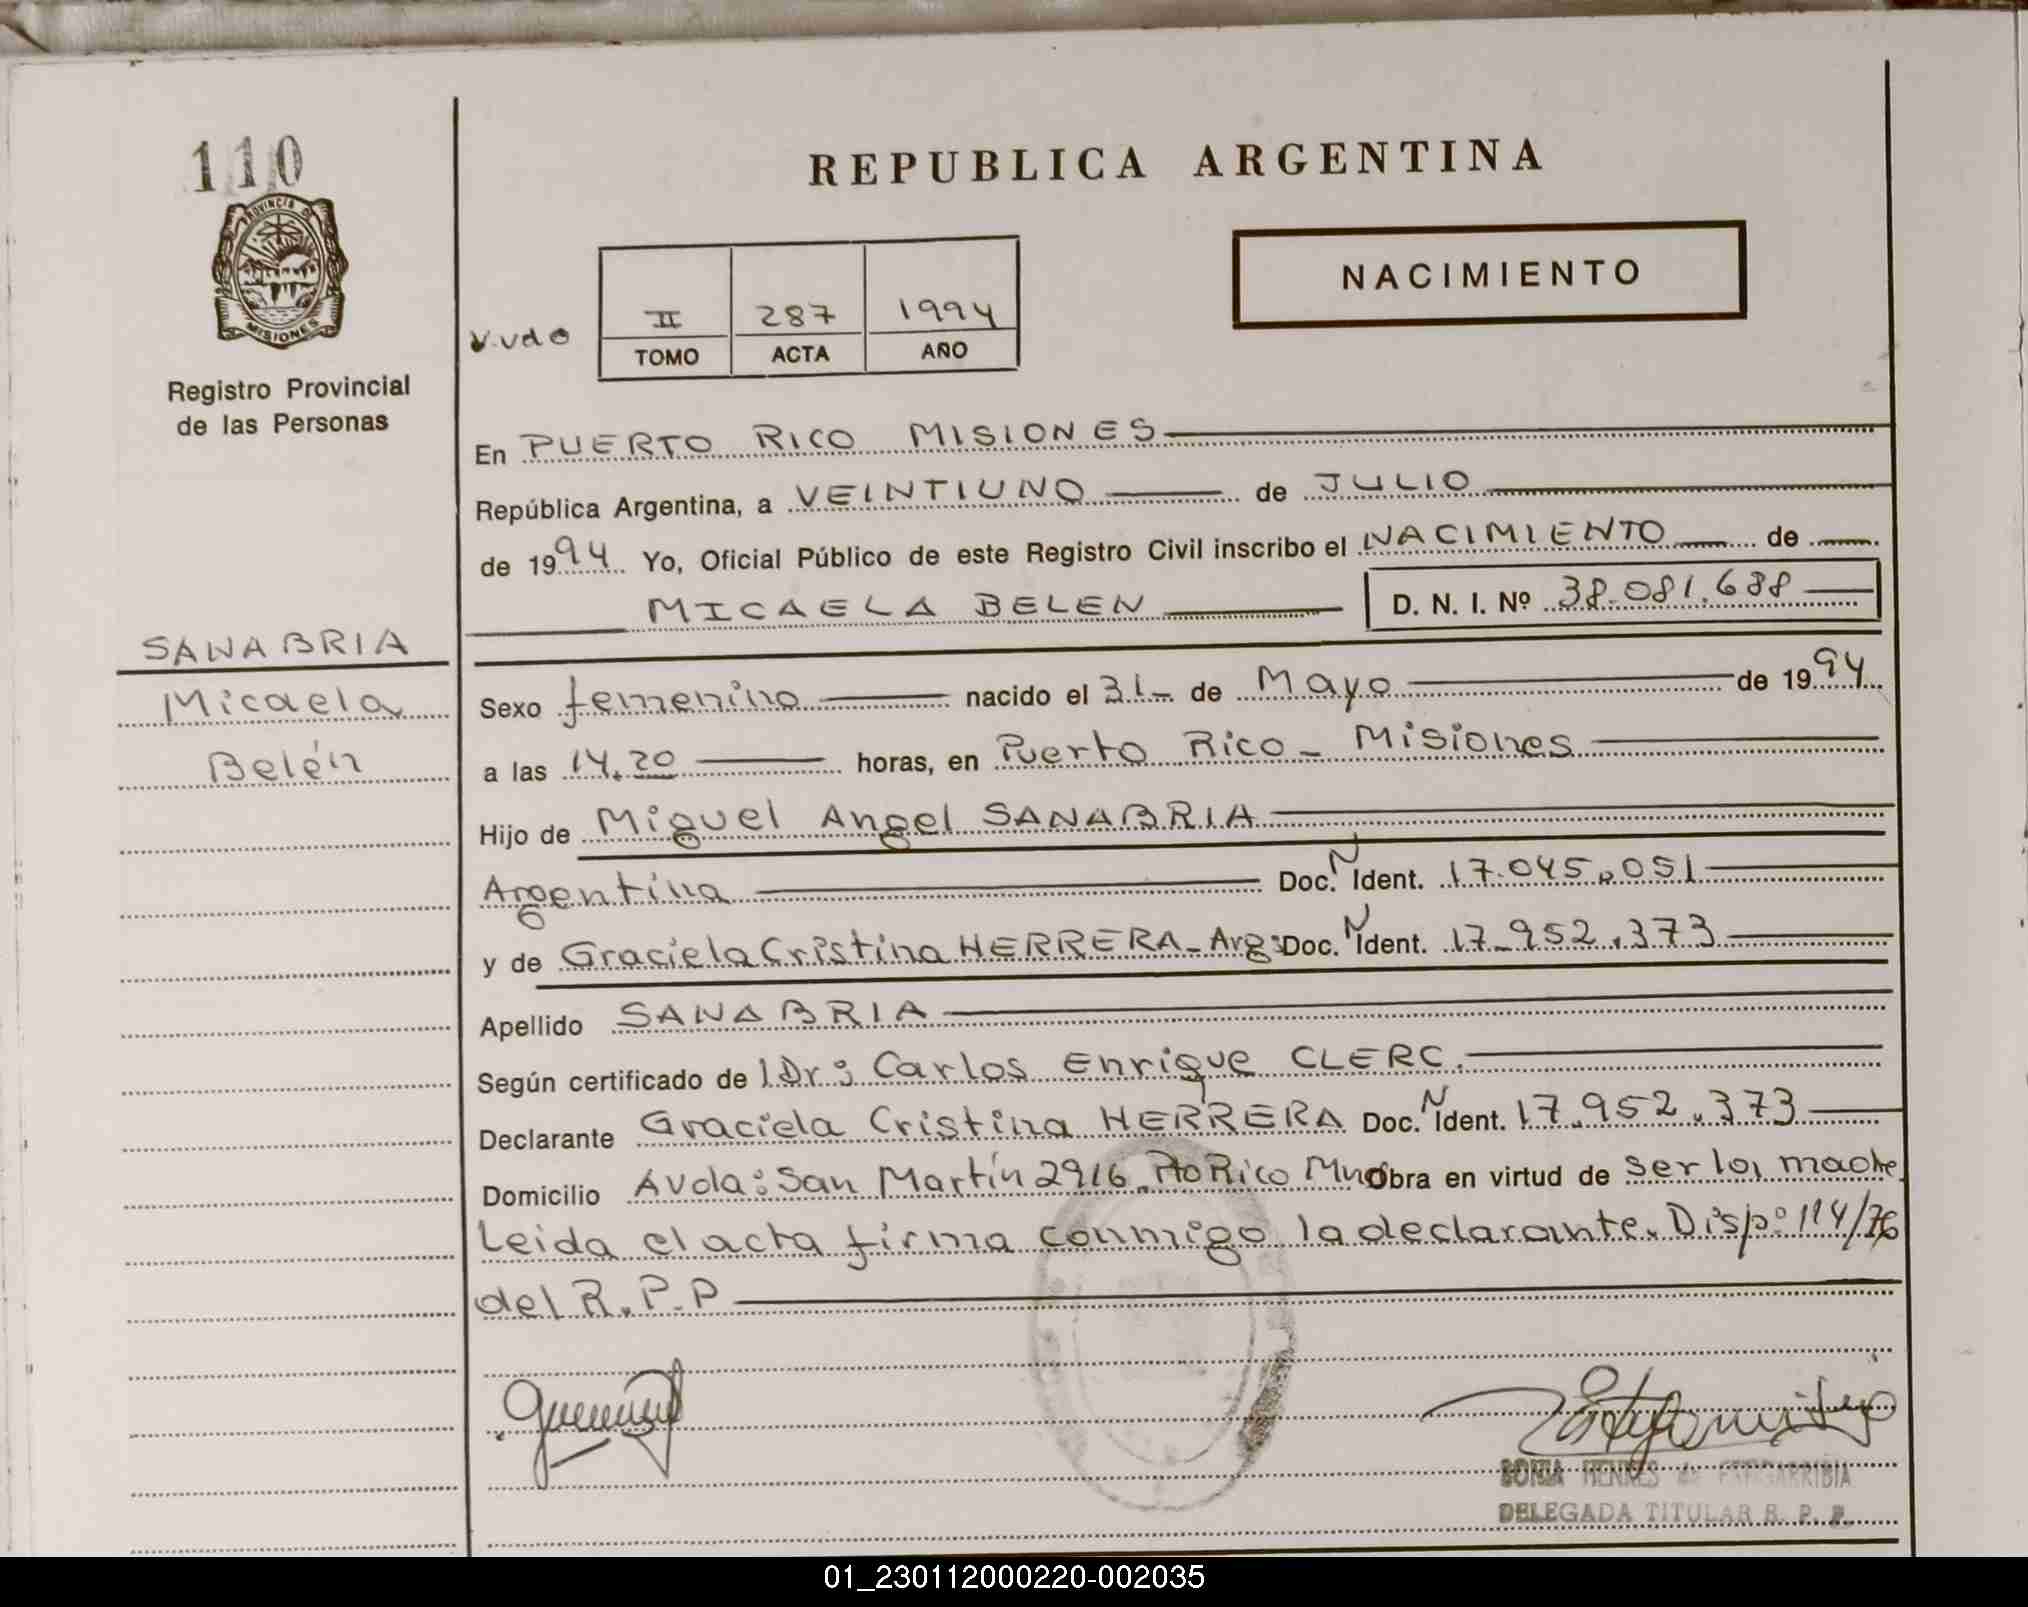 110
PROVINCIA DE
MISIONES
Registro Provincial
de las Personas
SANABRIA
Micaela
Belén
REPUBLICA ARGENTINA
NACIMIENTO
II 287 1994
TOMO ACTA AÑO
En PUERTO RICO MISIONES
República Argentina, a VEINTIUNO de JULIO
de 1994 Yo, Oficial Público de este Registro Civil inscribo el NACIMIENTO de
MICAELA BELEN D. N. I. Nº 38.081.688
Sexo femenino nacido el 31 de Mayo de 1994
a las 14.20 horas, en Puerto Rico - Misiones
Hijo de Miguel Angel SANABRIA
Argentina Doc. N Ident. 17.045.051
y de Graciela Cristina HERRERA - Arg: Doc. N Ident. 17.952.373
Apellido SANABRIA
Según certificado de l Dr: Carlos Enrique CLERC.
Declarante Graciela Cristina HERRERA Doc. N Ident. 17.952.373
Domicilio Avda: San Martín 2916 Pto Rico Mnes Obra en virtud de ser la madre
Leida el acta firma conmigo la declarante. Disp: 114/76
del R.P.P
SONIA HENNES de
DELEGADA TITULAR R. P. P.
01_230112000220-002035